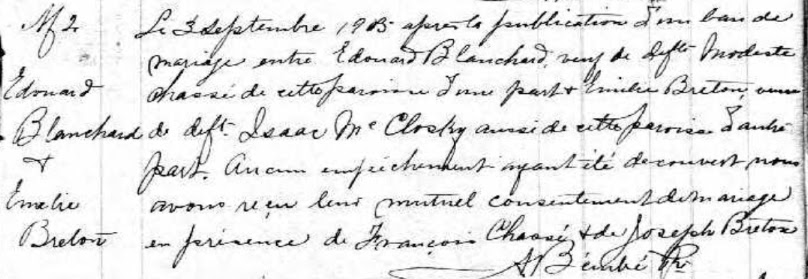 M 2.
Edouard
Blanchard
&
Emelie
Breton
Le 3 septembre 1905 après la publication d'un ban de
mariage entre Edouard Blanchard, veuf de deft Modeste
Chassé de cette paroisse d'une part & Emilie Breton, veuve
de deft. Isaac Mc Closky aussi de cette paroisse d'autre
part. Aucun empêchement ayant été découvert nous
avons reçu leur mutuel consentement de mariage
en présence de François Chassé & de Joseph Breton